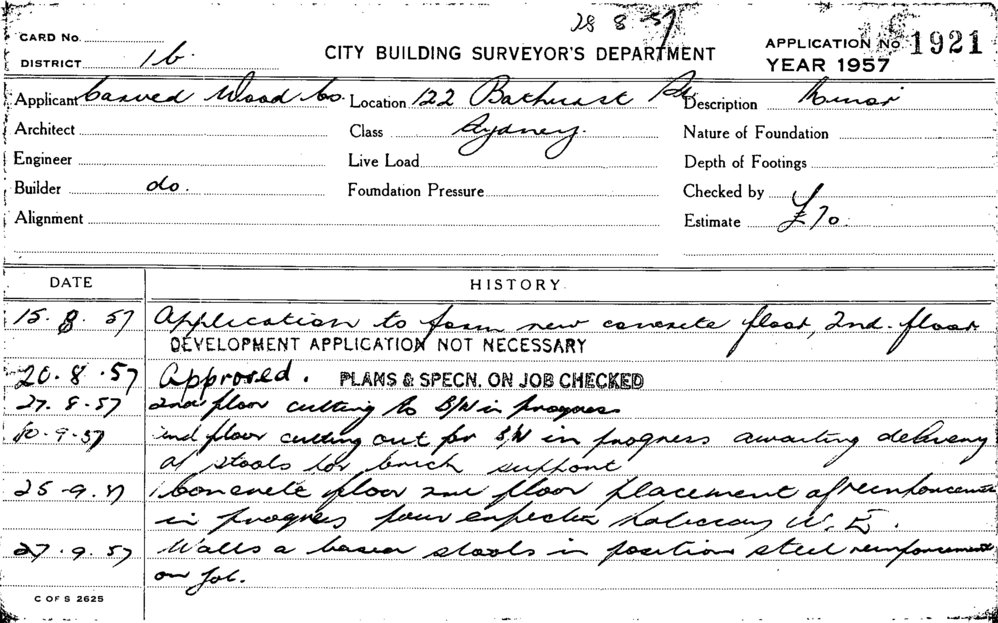 28 8 57
CARD No.
DISTRICT 1b
CITY BUILDING SURVEYOR'S DEPARTMENT
APPLICATION No. 1921
YEAR 1957
Applicant Carved Wood Co. Location 122 Bathurst St Description Minor
Architect Class Sydney. Nature of Foundation
Engineer Live Load Depth of Footings
Builder do. Foundation Pressure Checked by
Alignment Estimate £70.
DATE HISTORY
15. 8. 57 Application to form new concrete floor, 2nd. floor
DEVELOPMENT APPLICATION NOT NECESSARY
20. 8. 57 Approved. PLANS & SPECN. ON JOB CHECKED
27. 8. 57 2nd floor cutting to B/W in progress
10. 9. 57 2nd floor cutting out for B/W in progress awaiting delivery
of stools for brick support
25-9.57 Concrete floor 2nd floor placement of reinforcement
in progress pour expected
27. 9. 57 Walls stools in position steel reinforcement
on job.
C OF S 2625